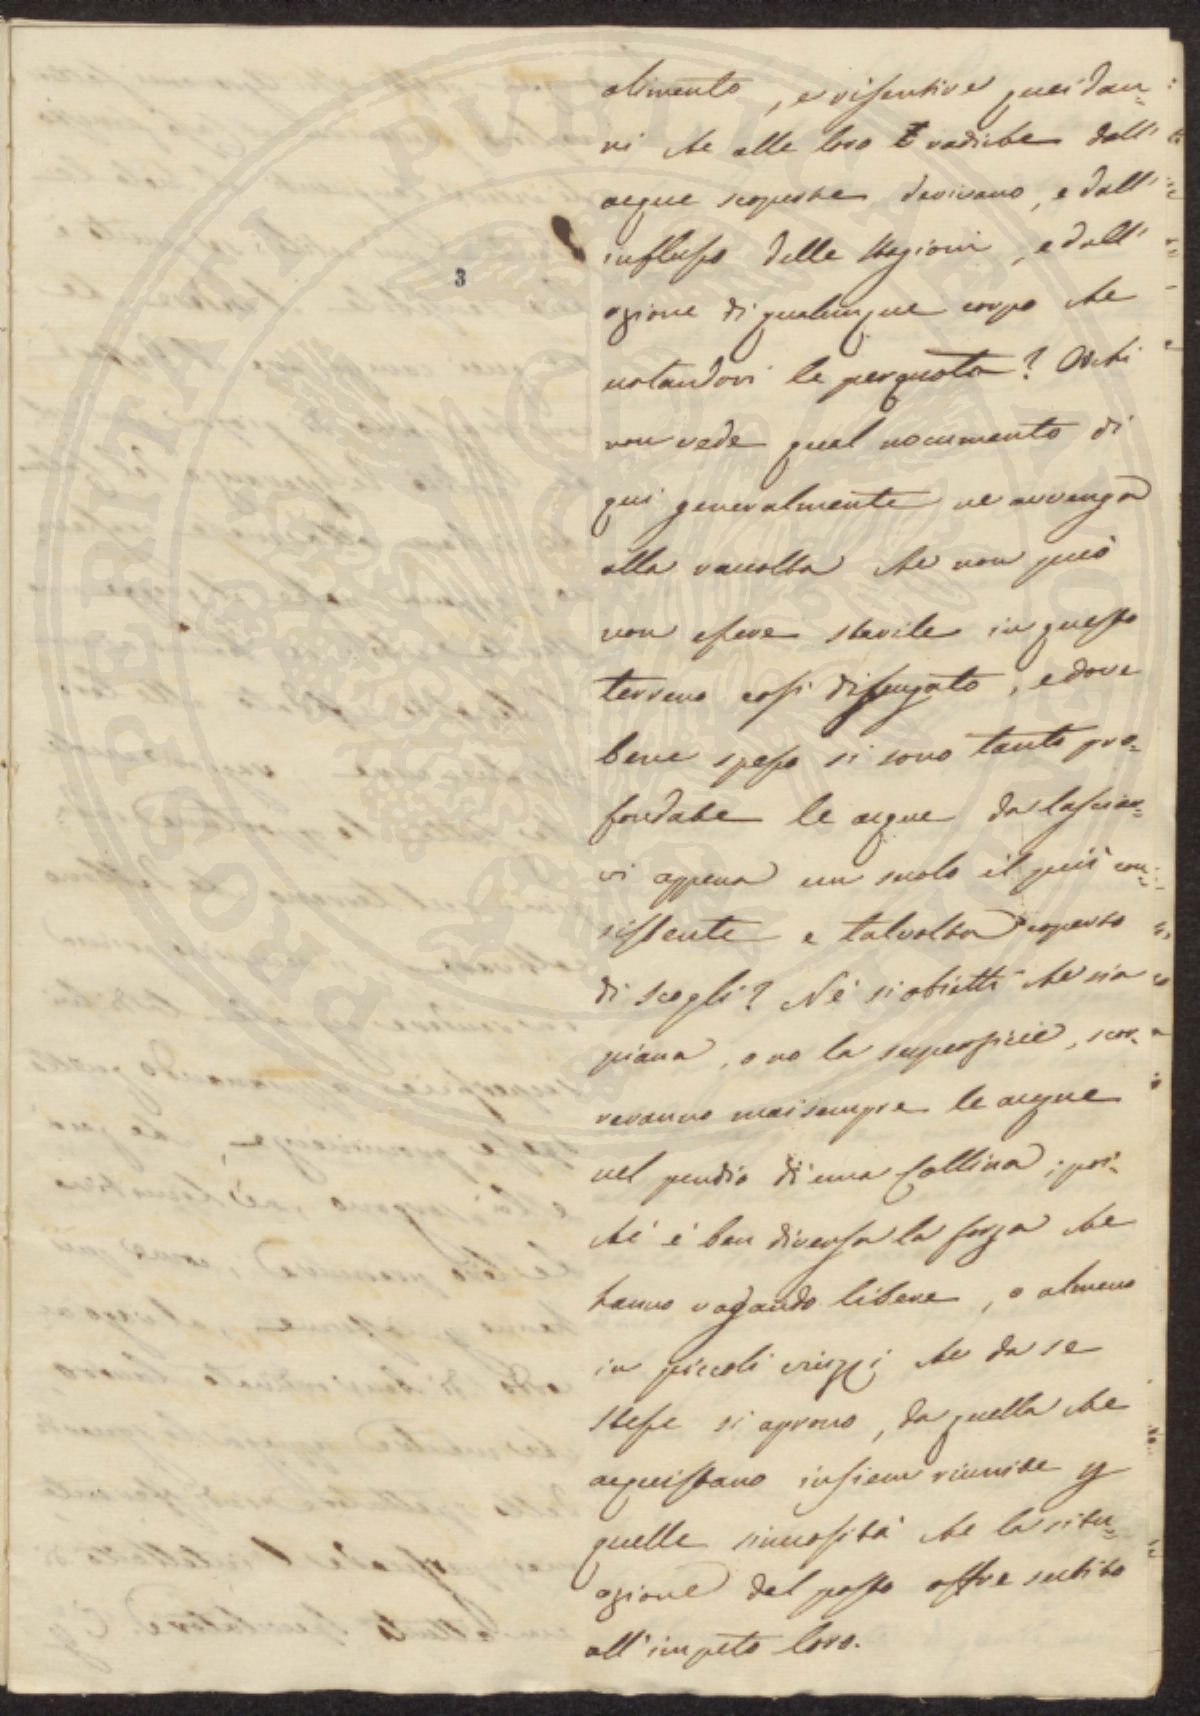 alimento, e risentire quei dan=
ni che alle loro radiche dall'
acque scoperte derivano, e dall'
influsso delle stagioni, e dall'
azione di qualunque corpo che
notandovi le perquota? Or chi
non vede qual nocumento di
qui generalmente ne avvenga
alla raccolta che non può
non essere sterile in questo
terreno così disengato, e dove
bene spesso si sono tanto pro=
fondate le acque da lasciar=
vi appena un suolo il più con=
sistente e talvolta coperto
di scogli? Nè si obietti che sia
piana, o no la superficie, scor=
reranno mai sempre le acque
nel pendio di una Collina; poi=
chè è ben diversa la forza che
hanno vagando libere, o almeno
in piccoli rivozzi che da se
stesse si aprono, da quella che
acquistano insieme riunite p
quelle sinuosità che la situ=
azione del posto offre subito
all'impeto loro.
3
PROSPERITATI PUBLICAE AUGENDAE